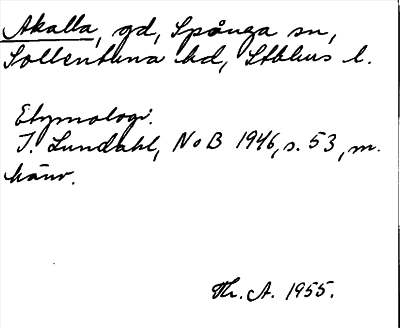 Akalla, gd, Spånga sn,
Sollentuna hd, Stblms l.
Etymologi.
I. Lundahl, NoB 1946, s. 53, m.
hänv.
Th. A. 1955.